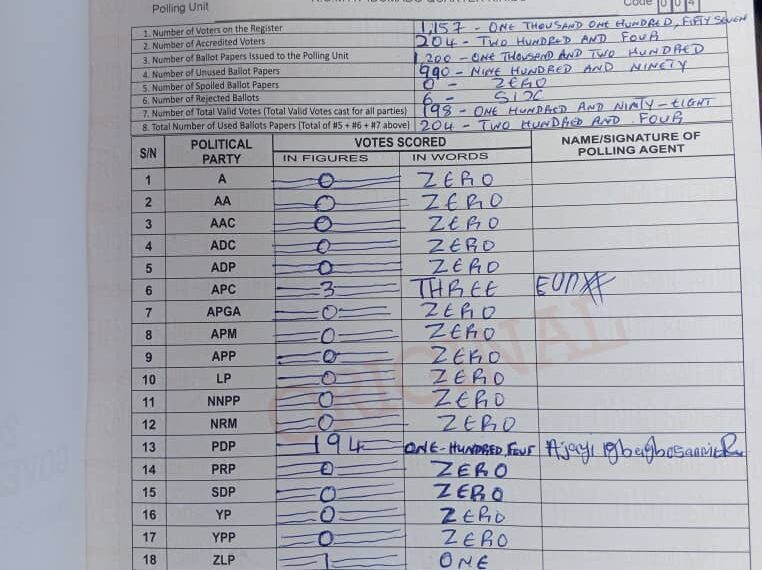 Polling Unit
Code 0 0 4
1. Number of Voters on the Register 1,157 - ONE THOUSAND ONE HUNDRED, FIFTY SEVEN
2. Number of Accredited Voters 204 - TWO HUNDRED AND FOUR
3. Number of Ballot Papers Issued to the Polling Unit 1,200 - ONE THOUSAND AND TWO HUNDRED
4. Number of Unused Ballot Papers 990 - NINE HUNDRED AND NINETY
5. Number of Spoiled Ballot Papers 0 - ZERO
6. Number of Rejected Ballots 6 - SIX
7. Number of Total Valid Votes (Total Valid Votes cast for all parties) 198 - ONE HUNDRED AND NINTY-EIGHT
8. Total Number of Used Ballots Papers (Total of #5 + #6 + #7 above) 204 - TWO HUNDRED AND FOUR
S/N POLITICAL PARTY VOTES SCORED NAME/SIGNATURE OF POLLING AGENT
IN FIGURES IN WORDS
1 A 0 ZERO
2 AA 0 ZERO
3 AAC 0 ZERO
4 ADC 0 ZERO
5 ADP 0 ZERO
6 APC 3 THREE
7 APGA 0 ZERO
8 APM 0 ZERO
9 APP 0 ZERO
10 LP 0 ZERO
11 NNPP 0 ZERO
12 NRM 0 ZERO
13 PDP 194 ONE-HUNDRED, Ajayi
14 PRP 0 ZERO
15 SDP 0 ZERO
16 YP 0 ZERO
17 YPP 0 ZERO
18 ZLP 1 ONE
ORIGINAL